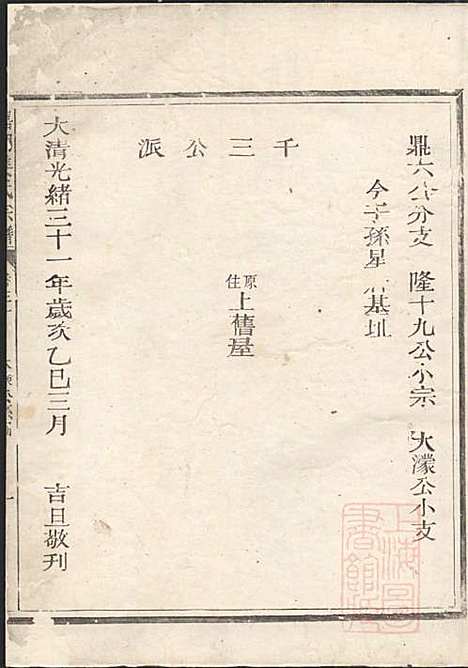 鼎六公分支 隆十九公小宗 大濛公小支
今子孫星居基址
千三公派
原住上舊屋
大清光緒三十一年歲次乙巳三月 吉旦敬刊
上海圖書館藏